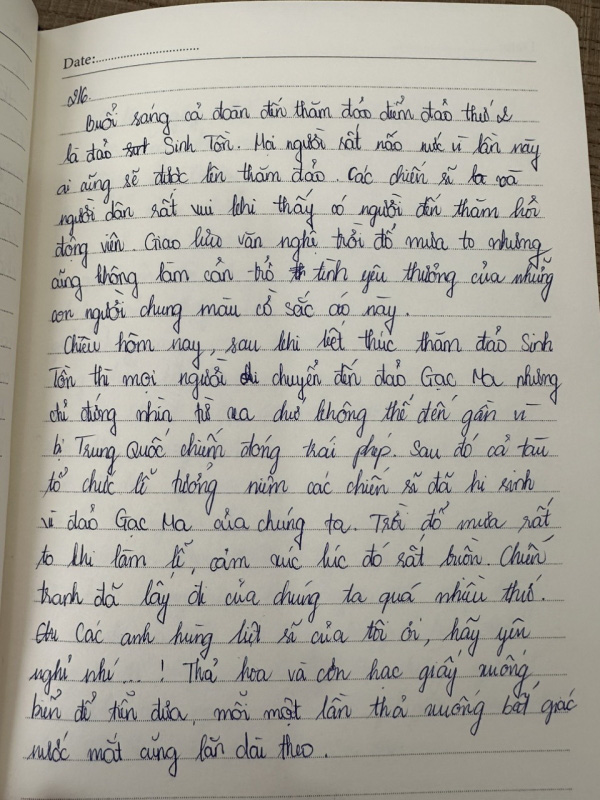 Date:
2/6.
Buổi sáng cả đoàn đến thăm đảo điểm đảo thứ 2
là đảo Sinh Tồn. Mọi người rất náo nức vì lần này
ai cũng sẽ được lên thăm đảo. Các chiến sĩ và
người dân rất vui khi thấy có người đến thăm hỏi
động viên. Giao lưu văn nghệ trời đổ mưa to nhưng
cũng không làm cản trở tình yêu thương của những
con người chung màu cờ sắc áo này.
Chiều hôm nay, sau khi kết thúc thăm đảo Sinh
Tồn thì mọi người di chuyển đến đảo Gạc Ma nhưng
chỉ đứng nhìn từ xa chứ không thể đến gần vì
bị Trung Quốc chiếm đóng trái phép. Sau đó cả tàu
tổ chức lễ tưởng niệm các chiến sĩ đã hi sinh
vì đảo Gạc Ma của chúng ta. Trời đổ mưa rất
to khi làm lễ, cảm xúc lúc đó rất buồn. Chiến
tranh đã lấy đi của chúng ta quá nhiều thứ.
Các anh hùng liệt sĩ của tôi ơi, hãy yên
nghỉ nhé...! Thả hoa và còn hạc giấy xuống
biển để tiễn đưa, mỗi một lần thả xuống bất giác
nước mắt cũng lăn dài theo.